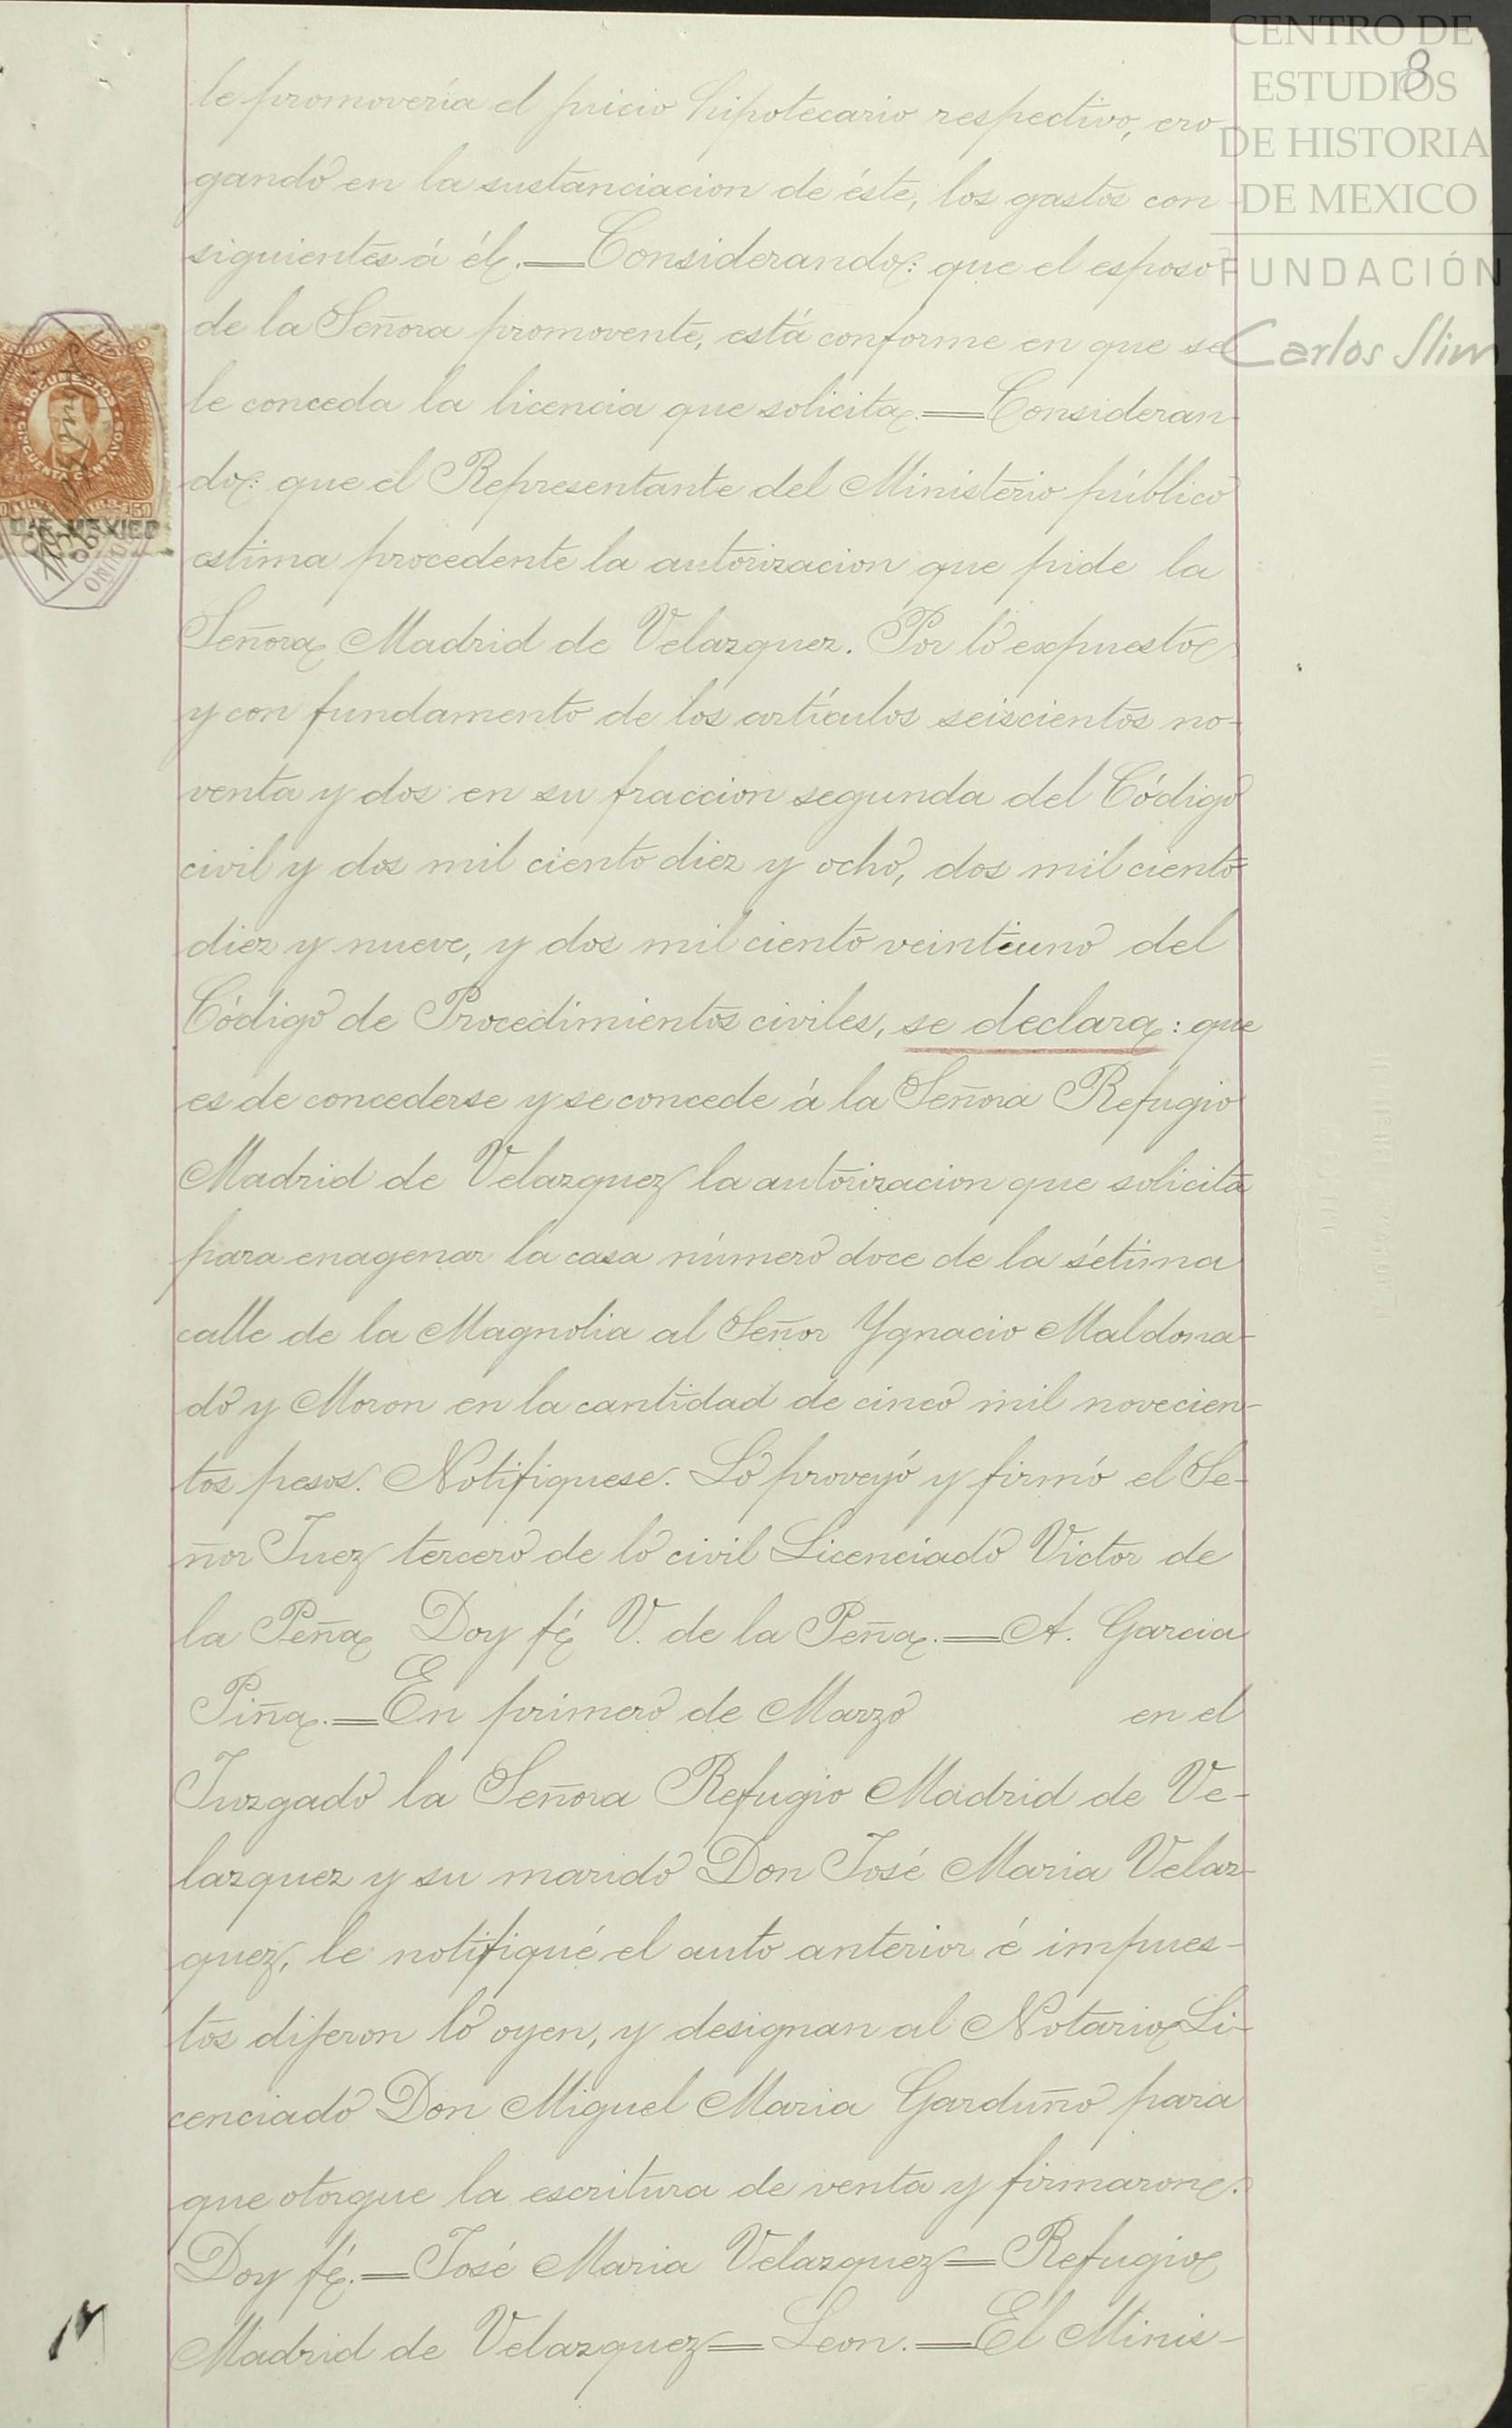 CENTRO DE
ESTUDIOS
DE HISTORIA
DE MEXICO
FUNDACIÓN
Carlos Slim
8
le promoveria el juicio hipotecario respectivo, ero
gando en la sustanciacion de éste, los gastos con
siguientes á él.=Considerando: que el esposo
de la Señora promovente, está conforme en que se
le conceda la licencia que solicita.=Consideran-
do: que el Representante del Ministerio público
estima procedente la autorizacion que pide la
Señora Madrid de Velazquez. Por lo expuesto
y con fundamento de los artículos seiscientos no-
venta y dos en su fraccion segunda del Código
civil y dos mil ciento diez y ocho, dos mil ciento
diez y nueve, y dos mil ciento veintiuno del
Código de Procedimientos civiles, se declara: que
es de concederse y se concede á la Señora Refugio
Madrid de Velazquez la autorizacion que solicita
para enagenar la casa número doce de la sétima
calle de la Magnolia al Señor Ygnacio Maldona-
do y Moron en la cantidad de cinco mil novecien-
tos pesos. Notifiquese. Lo proveyó y firmó el Se-
ñor Juez tercero de lo civil Licenciado Victor de
la Peña Doy fé V. de la Peña.=A. Garcia
Piña.=En primero de Marzo en el
Juzgado la Señora Refugio Madrid de Ve-
lazquez y su marido Don José Maria Velaz-
quez, le notifiqué el auto anterior é impues-
tos dijeron lo oyen, y designan al Notario Li-
cenciado Don Miguel Maria Garduño para
que otorgue la escritura de venta y firmaron.
Doy fé.=José Maria Velazquez=Refugio
Madrid de Velazquez=Leon.=El Minis-
DOCUMENTOS
CINCUENTA CENTAVOS
50
MEXICO